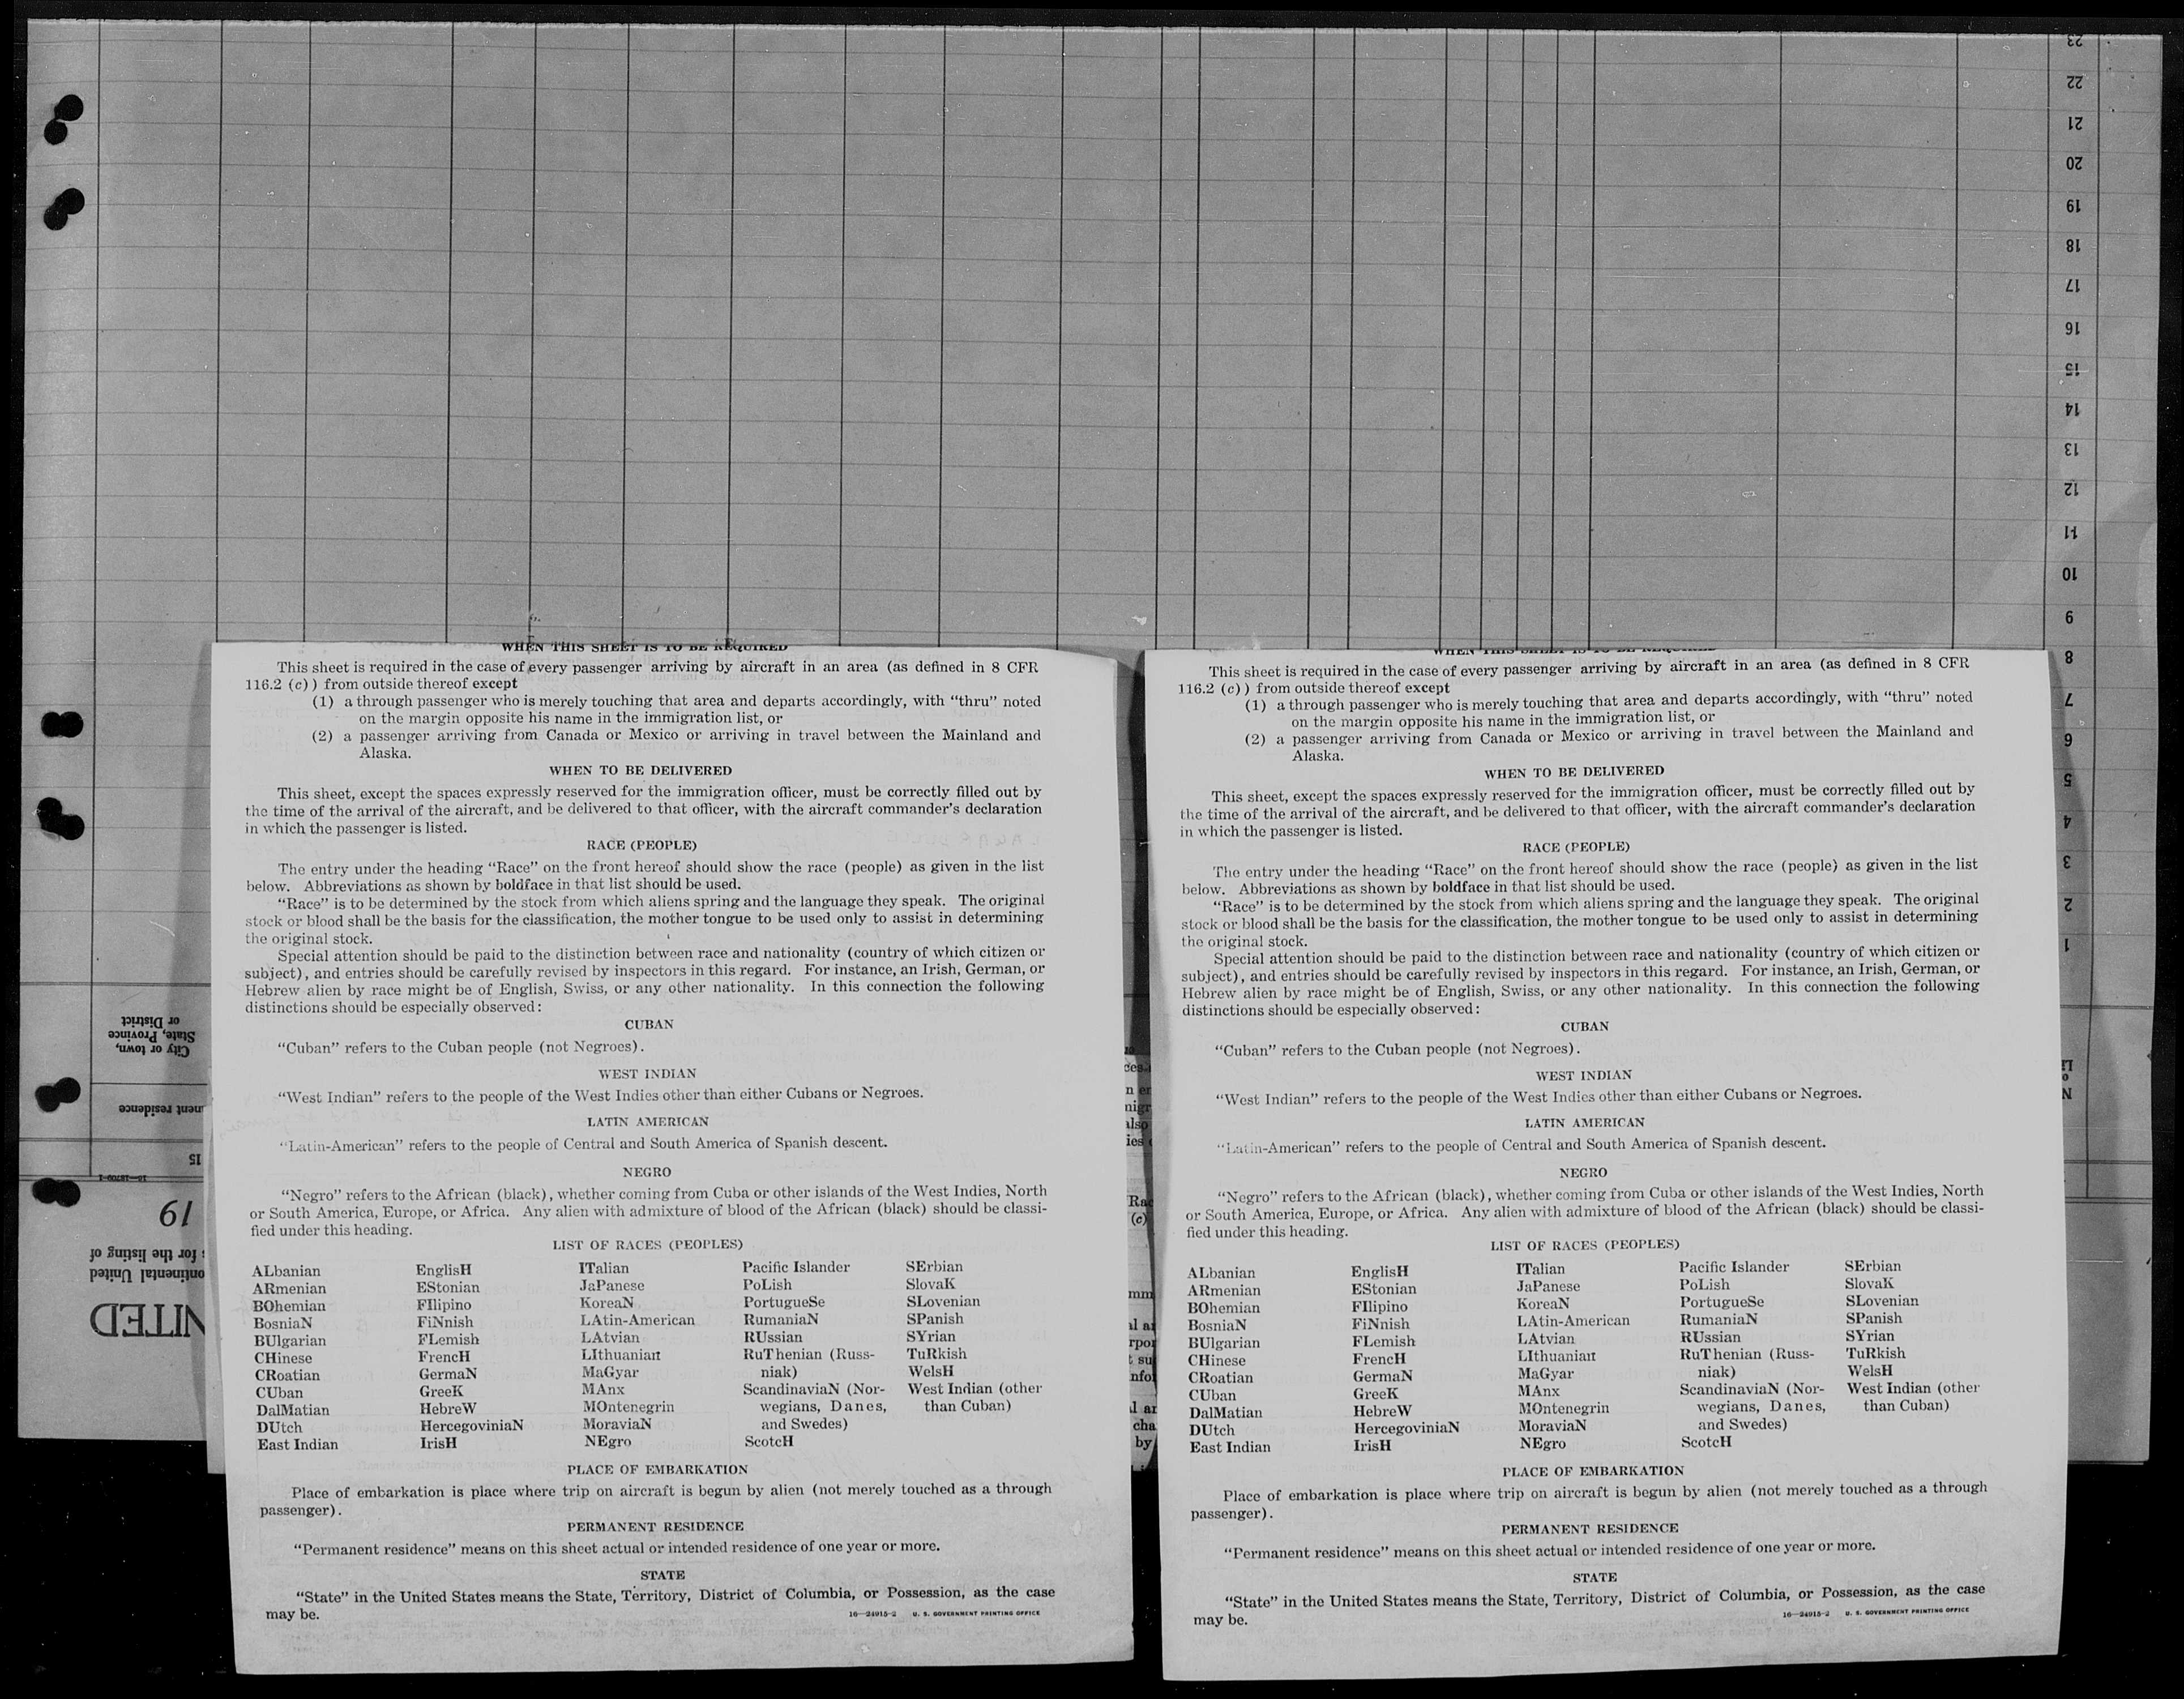 WHEN THIS SHEET IS TO BE REQUIRED
This sheet is required in the case of every passenger arriving by aircraft in an area (as defined in 8 CFR
116.2 (c)) from outside thereof except
(1) a through passenger who is merely touching that area and departs accordingly, with “thru” noted
on the margin opposite his name in the immigration list, or
(2) a passenger arriving from Canada or Mexico or arriving in travel between the Mainland and
Alaska.
WHEN TO BE DELIVERED
This sheet, except the spaces expressly reserved for the immigration officer, must be correctly filled out by
the time of the arrival of the aircraft, and be delivered to that officer, with the aircraft commander’s declaration
in which the passenger is listed.
RACE (PEOPLE)
The entry under the heading “Race” on the front hereof should show the race (people) as given in the list
below. Abbreviations as shown by boldface in that list should be used.
“Race” is to be determined by the stock from which aliens spring and the language they speak. The original
stock or blood shall be the basis for the classification, the mother tongue to be used only to assist in determining
the original stock.
Special attention should be paid to the distinction between race and nationality (country of which citizen or
subject), and entries should be carefully revised by inspectors in this regard. For instance, an Irish, German, or
Hebrew alien by race might be of English, Swiss, or any other nationality. In this connection the following
distinctions should be especially observed:
CUBAN
“Cuban” refers to the Cuban people (not Negroes).
WEST INDIAN
“West Indian” refers to the people of the West Indies other than either Cubans or Negroes.
LATIN AMERICAN
“Latin-American” refers to the people of Central and South America of Spanish descent.
NEGRO
“Negro” refers to the African (black), whether coming from Cuba or other islands of the West Indies, North
or South America, Europe, or Africa. Any alien with admixture of blood of the African (black) should be classi-
fied under this heading.
LIST OF RACES (PEOPLES)
ALbanian EnglisH ITalian Pacific Islander SErbian
ARmenian EStonian JaPanese PoLish SlovaK
BOhemian FIlipino KoreaN PortugueSe SLovenian
BosniaN FiNnish LAtin-American RumaniaN SPanish
BUlgarian FLemish LAtvian RUssian SYrian
CHinese FrencH LIthuanian RuThenian (Russ- TuRkish
CRoatian GermaN MaGyar niak) WelsH
CUban GreeK MAnx ScandinaviaN (Nor- West Indian (other
DalMatian HebreW MOntenegrin wegians, Danes, than Cuban)
DUtch HercegoviniaN MoraviaN and Swedes)
East Indian IrisH NEgro ScotcH
PLACE OF EMBARKATION
Place of embarkation is place where trip on aircraft is begun by alien (not merely touched as a through
passenger).
PERMANENT RESIDENCE
“Permanent residence” means on this sheet actual or intended residence of one year or more.
STATE
“State” in the United States means the State, Territory, District of Columbia, or Possession, as the case
may be.
16—24915-2 U. S. GOVERNMENT PRINTING OFFICE
WHEN THIS SHEET IS TO BE REQUIRED
This sheet is required in the case of every passenger arriving by aircraft in an area (as defined in 8 CFR
116.2 (c)) from outside thereof except
(1) a through passenger who is merely touching that area and departs accordingly, with “thru” noted
on the margin opposite his name in the immigration list, or
(2) a passenger arriving from Canada or Mexico or arriving in travel between the Mainland and
Alaska.
WHEN TO BE DELIVERED
This sheet, except the spaces expressly reserved for the immigration officer, must be correctly filled out by
the time of the arrival of the aircraft, and be delivered to that officer, with the aircraft commander’s declaration
in which the passenger is listed.
RACE (PEOPLE)
The entry under the heading “Race” on the front hereof should show the race (people) as given in the list
below. Abbreviations as shown by boldface in that list should be used.
“Race” is to be determined by the stock from which aliens spring and the language they speak. The original
stock or blood shall be the basis for the classification, the mother tongue to be used only to assist in determining
the original stock.
Special attention should be paid to the distinction between race and nationality (country of which citizen or
subject), and entries should be carefully revised by inspectors in this regard. For instance, an Irish, German, or
Hebrew alien by race might be of English, Swiss, or any other nationality. In this connection the following
distinctions should be especially observed:
CUBAN
“Cuban” refers to the Cuban people (not Negroes).
WEST INDIAN
“West Indian” refers to the people of the West Indies other than either Cubans or Negroes.
LATIN AMERICAN
“Latin-American” refers to the people of Central and South America of Spanish descent.
NEGRO
“Negro” refers to the African (black), whether coming from Cuba or other islands of the West Indies, North
or South America, Europe, or Africa. Any alien with admixture of blood of the African (black) should be classi-
fied under this heading.
LIST OF RACES (PEOPLES)
ALbanian EnglisH ITalian Pacific Islander SErbian
ARmenian EStonian JaPanese PoLish SlovaK
BOhemian FIlipino KoreaN PortugueSe SLovenian
BosniaN FiNnish LAtin-American RumaniaN SPanish
BUlgarian FLemish LAtvian RUssian SYrian
CHinese FrencH LIthuanian RuThenian (Russ- TuRkish
CRoatian GermaN MaGyar niak) WelsH
CUban GreeK MAnx ScandinaviaN (Nor- West Indian (other
DalMatian HebreW MOntenegrin wegians, Danes, than Cuban)
DUtch HercegoviniaN MoraviaN and Swedes)
East Indian IrisH NEgro ScotcH
PLACE OF EMBARKATION
Place of embarkation is place where trip on aircraft is begun by alien (not merely touched as a through
passenger).
PERMANENT RESIDENCE
“Permanent residence” means on this sheet actual or intended residence of one year or more.
STATE
“State” in the United States means the State, Territory, District of Columbia, or Possession, as the case
may be.
16—24915-2 U. S. GOVERNMENT PRINTING OFFICE
23
22
21
20
19
18
17
16
15
14
13
12
11
10
9
8
7
6
5
4
3
2
1
NITED
ontinental United
for the listing of
19
15
nent residence
City or town,
State, Province
or District